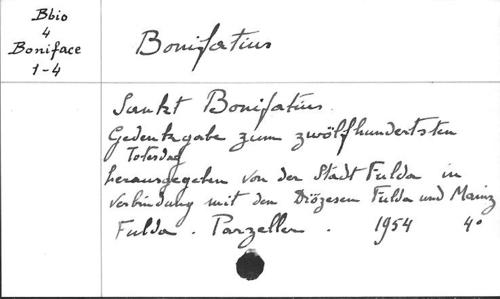 Bbio
4
Boniface
1-4
Bonifatius
Sankt Bonifatius.
Gedenkgabe zum zwölfhundertsten
Totestag
herausgegeben von der Stadt Fulda in
Verbindung mit den Diözesen Fulda und Mainz
Fulda. Parzeller. 1954 4°